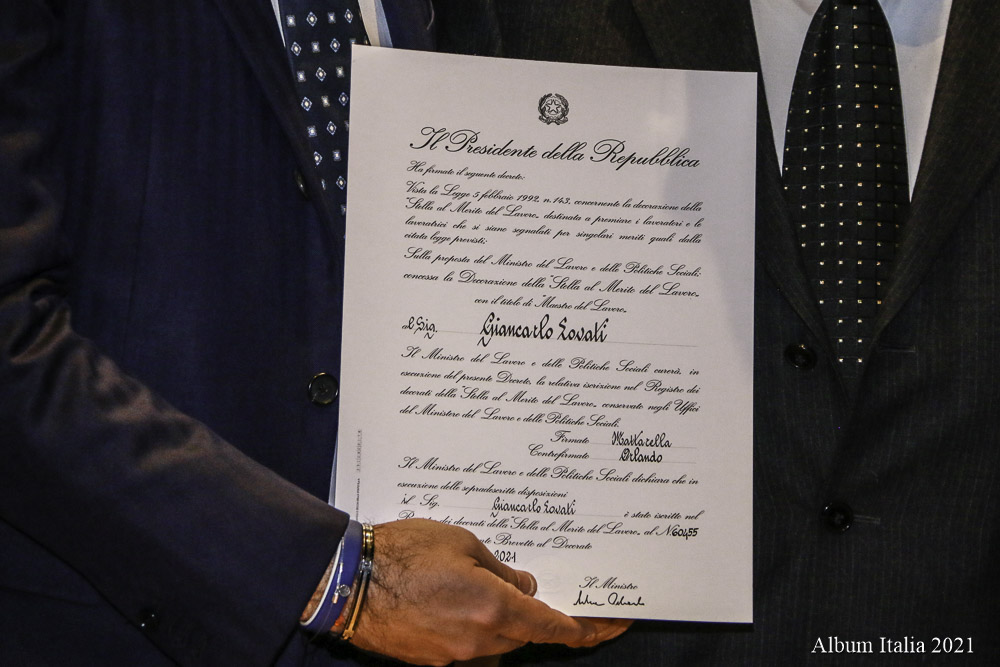 Il Presidente della Repubblica
Ha firmato il seguente decreto:
Vista la Legge 5 febbraio 1992, n. 143, concernente la decorazione della
"Stella al Merito del Lavoro" destinata a premiare i lavoratori e le
lavoratrici che si siano segnalati per singolari meriti quali dalla
citata legge previsti;
Sulla proposta del Ministro del Lavoro e delle Politiche Sociali;
concessa la Decorazione della "Stella al Merito del Lavoro"
con il titolo di "Maestro del Lavoro"
al Sig. Giancarlo Lovati
Il Ministro del Lavoro e delle Politiche Sociali curerà, in
esecuzione del presente Decreto, la relativa iscrizione nel Registro dei
decorati della "Stella al Merito del Lavoro" conservato negli Uffici
del Ministero del Lavoro e delle Politiche Sociali.
Firmato Mattarella
Controfirmato Orlando
Il Ministro del Lavoro e delle Politiche Sociali dichiara che in
esecuzione delle sopradescritte disposizioni
il Sig. Giancarlo Lovati è stato iscritto nel
dei decorati della "Stella al Merito del Lavoro" al N. 60455
Brevetto al Decorato
2021
Il Ministro
Album Italia 2021